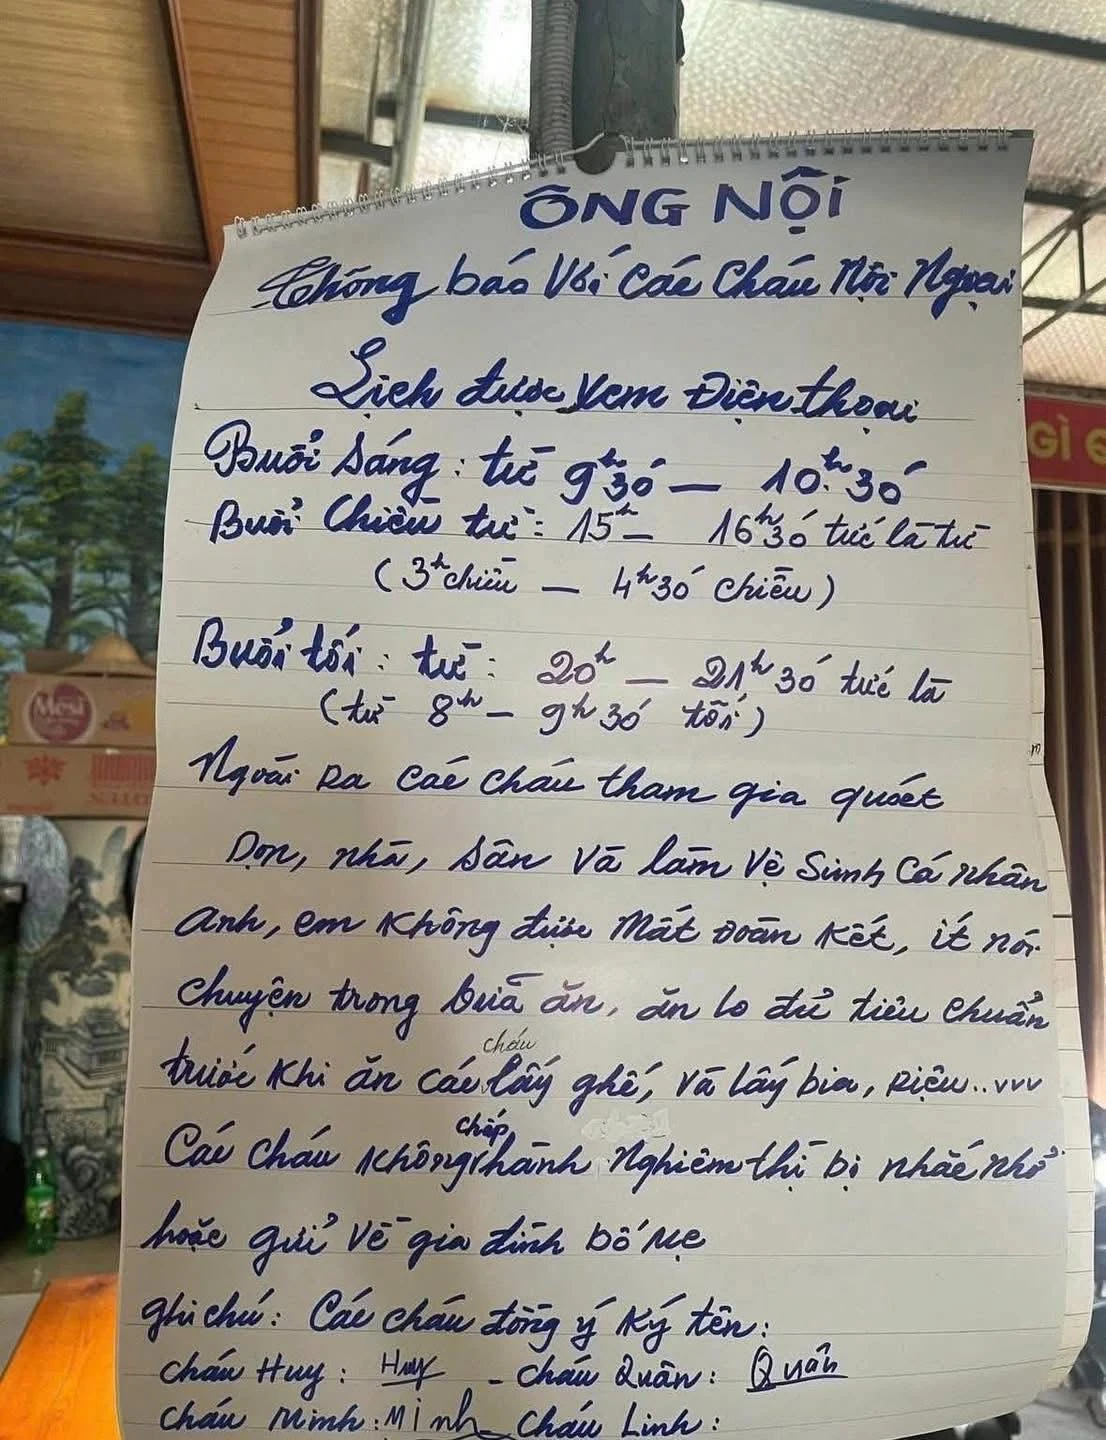 ÔNG NỘI
Thông báo Với Các Cháu Nội Ngoại
Lịch được xem Điện thoại
Buổi Sáng: từ 9h30' — 10h30'
Buổi Chiều từ: 15h — 16h30' tức là từ
(3h chiều — 4h30' chiều)
Buổi tối: từ: 20h — 21h30' tức là
(từ 8h — 9h30' tối)
Ngoài Ra các cháu tham gia quét
Dọn, nhà, sân và làm vệ Sinh Cá nhân
Anh, em Không được Mất Đoàn Kết, ít nói
chuyện trong bữa ăn, ăn lo đủ tiêu chuẩn
trước Khi ăn các cháu lấy ghế, và lấy bia, Rượu..vvv
Các cháu không chấp hành Nghiêm thì bị nhắc nhở
hoặc gửi về gia đình bố Mẹ
ghi chú: Các cháu đồng ý Ký tên:
Cháu Huy: Huy - Cháu Quân: Quân
Cháu Minh: Minh Cháu Linh:
GÌ
Mesi